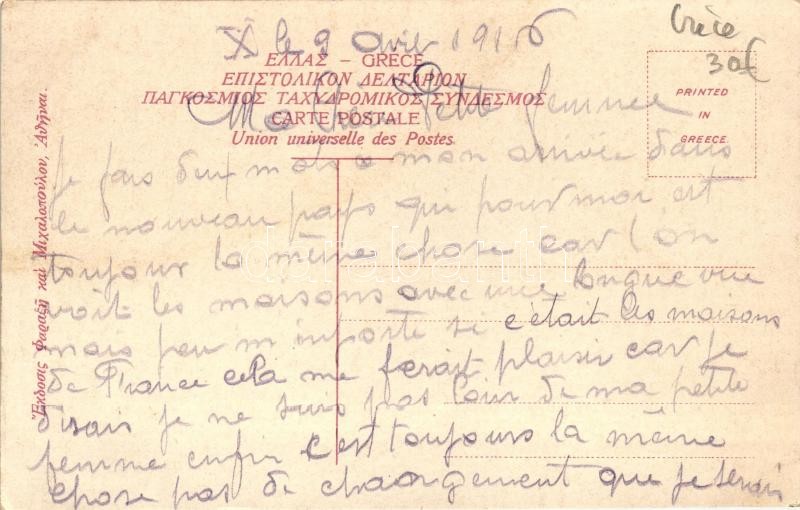 X le 9 Avril 1916
Grèce
30€
ΕΛΛΑΣ – GRÈCE
ΕΠΙΣΤΟΛΙΚΟΝ ΔΕΛΤΑΡΙΟΝ
ΠΑΓΚΟΣΜΙΟΣ ΤΑΧΥΔΡΟΜΙΚΟΣ ΣΥΝΔΕΣΜΟΣ
CARTE POSTALE
Union universelle des Postes
PRINTED
IN
GREECE
Ἔκδοσις Φαραζῆ καὶ Μιχαλοπούλου, Ἀθῆναι.
Ma Chère Petite femme
Je fais deux mots a mon arrivée dans
le nouveau pays qui pour moi est
toujour la même chose car l'on
voit les maisons avec une longue vue
mais peu m'importe se c'était les maisons
de France cela me ferait plaisir car je
disais je ne suis pas loin de ma petite
femme enfin c'est toujours la même
chose pas de chaongement que je serais